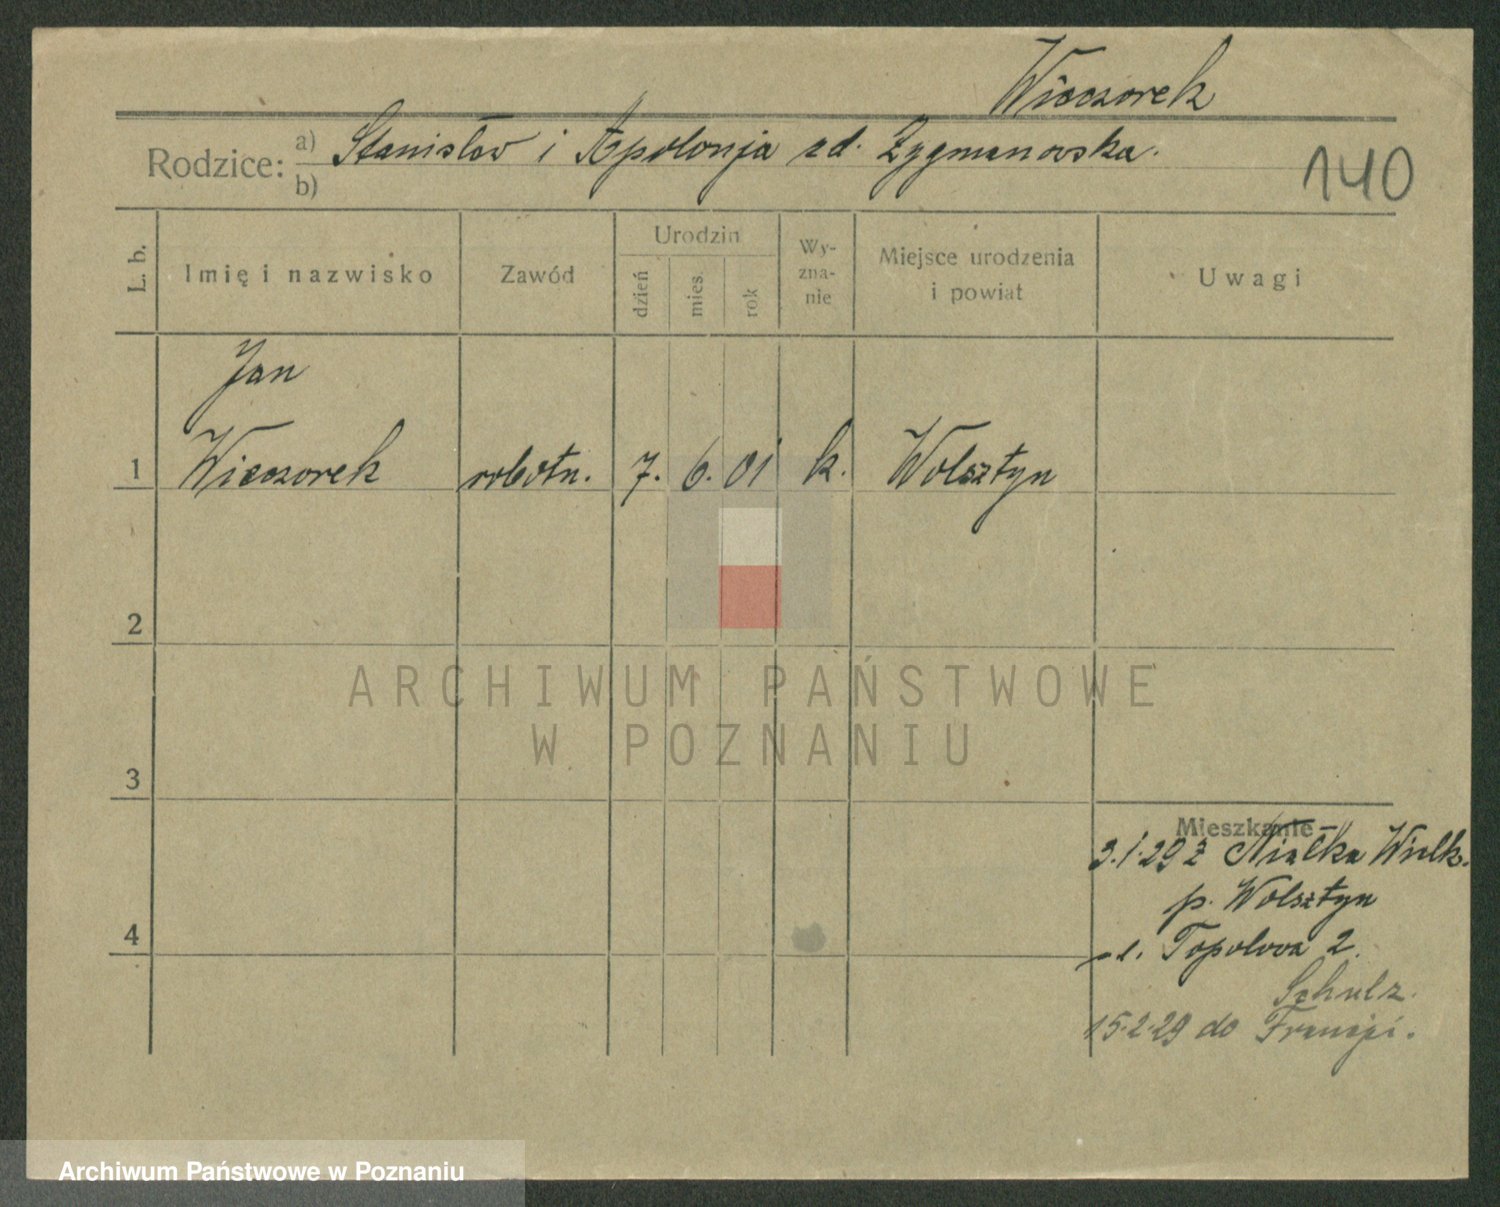 Wieczorek
Rodzice: a) Stanisław i Apolonja zd. Zygmanowska.
b)
140
L. b.
Imię i nazwisko
Zawód
Urodzin
dzień
mies.
rok
Wy-
zna-
nie
Miejsce urodzenia
i powiat
Uwagi
Jan
1 Wieczorek robotn. 7. 6. 01 k. Wolsztyn
2
3
Mieszkanie
3.1.29 z Niałka Wielk.
p. Wolsztyn
4
Topolowa 2.
Schulz.
15.2.29 do Francji.
ARCHIWUM PAŃSTWOWE
W POZNANIU
Archiwum Państwowe w Poznaniu